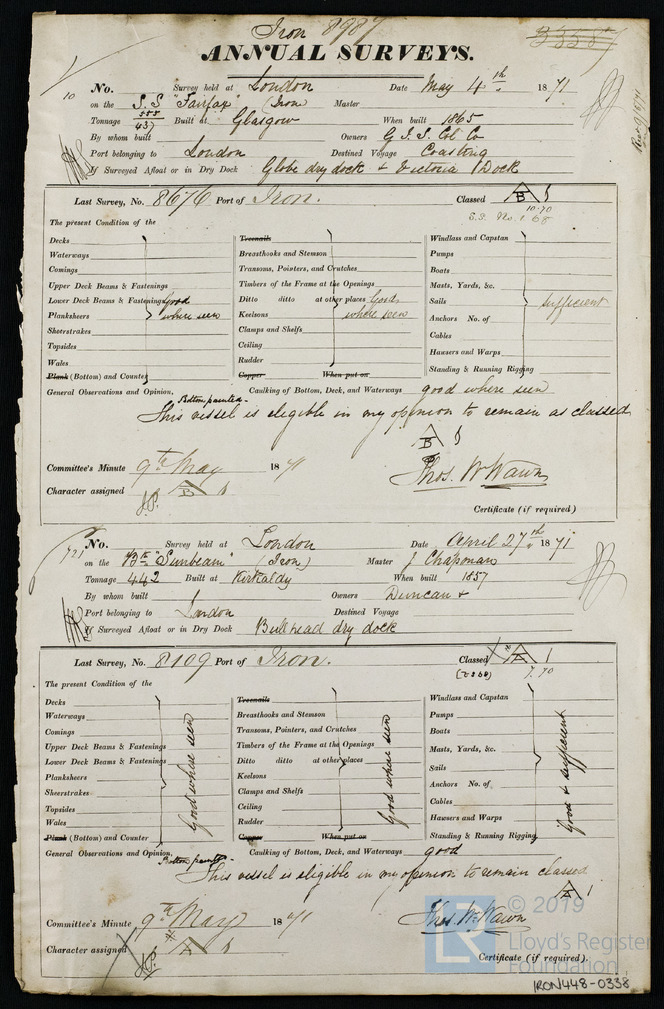 Iron 8987
33587
ANNUAL SURVEYS.
10 No. Survey held at London Date May 4th 1871
on the S.S "Fairfax" (Iron) Master
Tonnage 555 437 Built at Glasgow When built 1865
By whom built Owners G. I. S. Col. Co
Port belonging to London Destined Voyage Coasting
If Surveyed Afloat or in Dry Dock Globe dry dock & Victoria Dock
Rec 9/5/71
Last Survey, No. 8676 Port of Iron. Classed A B 1
10.70
S.S. No. 1. 68
The present Condition of the
Decks
Waterways
Comings
Upper Deck Beams & Fastenings
Lower Deck Beams & Fastenings good
Planksheers where seen
Sheerstrakes
Topsides
Wales
Plank (Bottom) and Counter
Treenails
Breasthooks and Stemson
Transoms, Pointers, and Crutches
Timbers of the Frame at the Openings
Ditto ditto at other places Good
Keelsons where seen
Clamps and Shelfs
Ceiling
Rudder
Copper When put on
Windlass and Capstan
Pumps
Boats
Masts, Yards, &c.
Sails sufficient
Anchors No. of
Cables
Hawsers and Warps
Standing & Running Rigging
General Observations and Opinion, Caulking of Bottom, Deck, and Waterways good where seen
Bottom painted.
This vessel is eligible in my opinion to remain as classed
A B 1
Committee's Minute 9th May 1871
Thos. W. Wawn
Character assigned A B 1
Certificate (if required)
721 No. Survey held at London Date April 27th 1871
on the Bk "Sunbeam" Iron) Master J Chapman
Tonnage 442 Built at Kirkaldy When built 1857
By whom built Owners Duncan &
Port belonging to London Destined Voyage
If Surveyed Afloat or in Dry Dock Bullhead dry dock
Last Survey, No. 8109 Port of Iron. Classed A 1
7.70
The present Condition of the
Decks
Waterways
Comings
Upper Deck Beams & Fastenings
Lower Deck Beams & Fastenings
Planksheers
Sheerstrakes
Topsides
Wales
Plank (Bottom) and Counter
Good where seen
Treenails
Breasthooks and Stemson
Transoms, Pointers, and Crutches
Timbers of the Frame at the Openings
Ditto ditto at other places
Keelsons
Clamps and Shelfs
Ceiling
Rudder
Copper When put on
Good where seen
Windlass and Capstan
Pumps
Boats
Masts, Yards, &c.
Sails
Anchors No. of
Cables
Hawsers and Warps
Standing & Running Rigging
Good & sufficient
General Observations and Opinion, Caulking of Bottom, Deck, and Waterways good
Bottom painted.
This vessel is eligible in my opinion to remain classed
A 1
Committee's Minute 9th May 1871
Thos. W. Wawn
Character assigned A 1
Certificate (if required).
LR © 2019
Lloyd's Register
Foundation
IRON448-0338